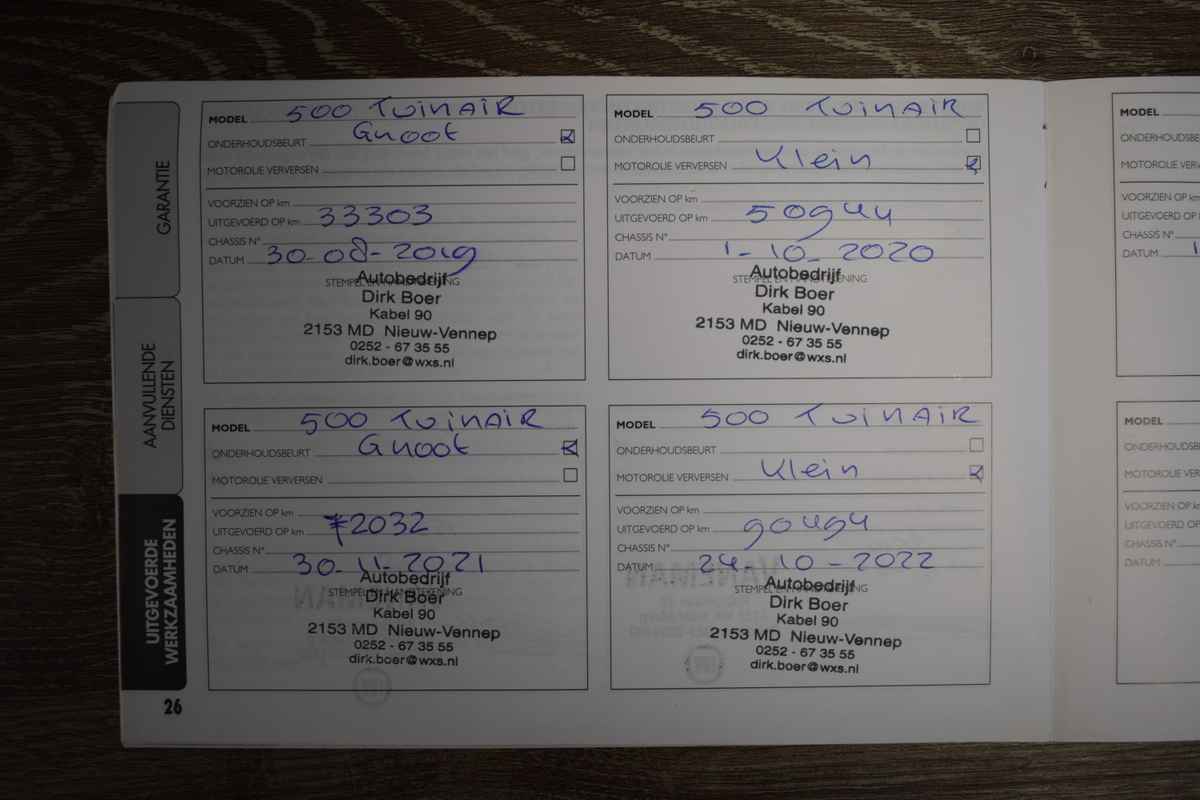 GARANTIE
AANVULLENDE
DIENSTEN
UITGEVOERDE
WERKZAAMHEDEN
26
MODEL 500 TWINAIR
ONDERHOUDSBEURT Groot
MOTOROLIE VERVERSEN
VOORZIEN OP km
UITGEVOERD OP km 33303
CHASSIS N°
DATUM 30-08-2019
STEMPEL EN HANDTEKENING
Autobedrijf
Dirk Boer
Kabel 90
2153 MD Nieuw-Vennep
0252 - 67 35 55
dirk.boer@wxs.nl
MODEL 500 TWINAIR
ONDERHOUDSBEURT
MOTOROLIE VERVERSEN Klein
VOORZIEN OP km
UITGEVOERD OP km 50944
CHASSIS N°
DATUM 1-10-2020
STEMPEL EN HANDTEKENING
Autobedrijf
Dirk Boer
Kabel 90
2153 MD Nieuw-Vennep
0252 - 67 35 55
dirk.boer@wxs.nl
MODEL 500 TWINAIR
ONDERHOUDSBEURT Groot
MOTOROLIE VERVERSEN
VOORZIEN OP km
UITGEVOERD OP km 72032
CHASSIS N°
DATUM 30-11-2021
STEMPEL EN HANDTEKENING
Autobedrijf
Dirk Boer
Kabel 90
2153 MD Nieuw-Vennep
0252 - 67 35 55
dirk.boer@wxs.nl
MODEL 500 TWINAIR
ONDERHOUDSBEURT
MOTOROLIE VERVERSEN Klein
VOORZIEN OP km
UITGEVOERD OP km 90494
CHASSIS N°
DATUM 24-10-2022
STEMPEL EN HANDTEKENING
Autobedrijf
Dirk Boer
Kabel 90
2153 MD Nieuw-Vennep
0252 - 67 35 55
dirk.boer@wxs.nl
MODEL
ONDERHOUDSBE
MOTOROLIE VER
VOORZIEN OP km
UITGEVOERD OP
CHASSIS N°
DATUM 1
MODEL
ONDERHOUDSB
MOTOROLIE VER
VOORZIEN OP km
UITGEVOERD OP
CHASSIS N°
DATUM